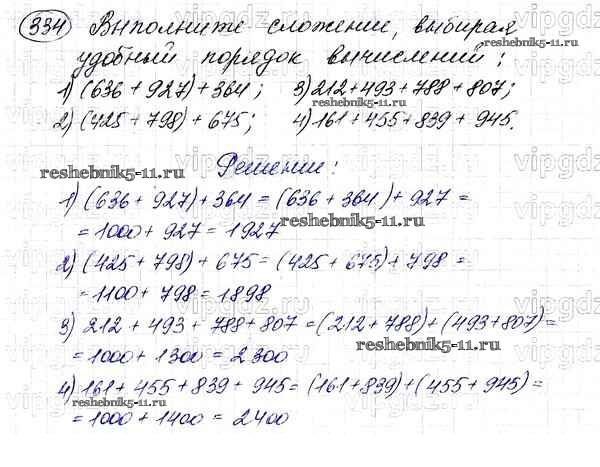 334 Выполните сложение, выбирая
удобный порядок вычислений:
1) (636 + 927) + 364; 3) 212 + 493 + 788 + 807;
2) (425 + 798) + 675; 4) 161 + 455 + 839 + 945.
Решение:
1) (636 + 927) + 364 = (636 + 364) + 927 =
= 1000 + 927 = 1927
2) (425 + 798) + 675 = (425 + 675) + 798 =
= 1100 + 798 = 1898
3) 212 + 493 + 788 + 807 = (212 + 788) + (493 + 807) =
= 1000 + 1300 = 2300
4) 161 + 455 + 839 + 945 = (161 + 839) + (455 + 945) =
= 1000 + 1400 = 2400
reshebnik5-11.ru
reshebnik5-11.ru
reshebnik5-11.ru
reshebnik5-11.ru
reshebnik5-11.ru
reshebnik5-11.ru